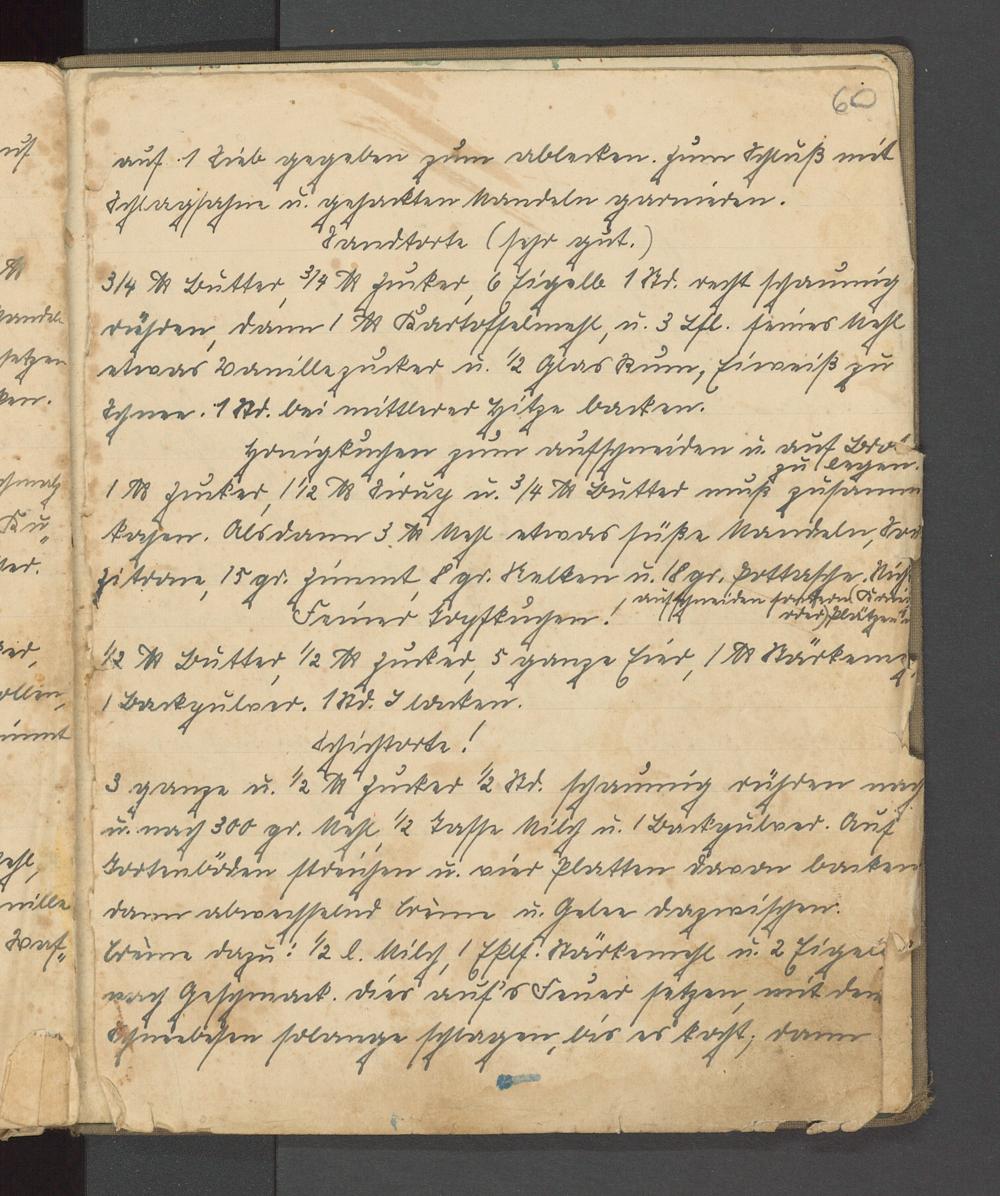 60
auf 1 Sieb gegeben zum ablecken. Zum Schluß mit
Schlagsahne u. gehackten Mandeln garnieren.
Sandtorte (sehr gut.)
3/4 ℔ Butter, 3/4 ℔ Zucker, 6 Eigelb 1 Std. recht schaumig
rühren, dann 1 ℔ Kartoffelmehl, u. 3 Lfl. feines Mehl
etwas Vanillezucker u. 1/2 Glas Rum, Eiweiß zu
Schnee. 1 Std. bei mittlerer Hitze backen.
Honigkuchen zum aufschneiden u. auf Bro
zu legen.
1 ℔ Zucker, 1 1/2 ℔ Sirup u. 3/4 ℔ Butter muß zusamm
kochen. Alsdann 3 ℔ Mehl etwas süße Mandeln,
Zitrone, 15 gr. Zimmt, 8 gr. Nelken u. 18 gr. Pottasche. Nich
aufschneiden sondern
oder Plätzen
Feiner Topfkuchen!
1/2 ℔ Butter, 1/2 ℔ Zucker, 5 ganze Eier, 1 ℔ Stärkeme
1 Backpulver. 1 Std. backen.
Schichtorte!
3 ganze u. 1/2 ℔ Zucker 1/2 Std. schaumig rühren nach
u. nach 300 gr. Mehl, 1/2 Tasse Milch u. 1 Backpulver. Auf
Tortenböden streichen u. vier Platten davon backen
dann abwechselnd Crème u. Gelee dazwischen.
Crème dazu: 1/2 l. Milch, 1 Eßlf. Stärkemehl u. 2 Eigel
nach Geschmack. Dies auf's Feuer setzen, mit dem
Schneebesen solange schlagen, bis es kocht, dann